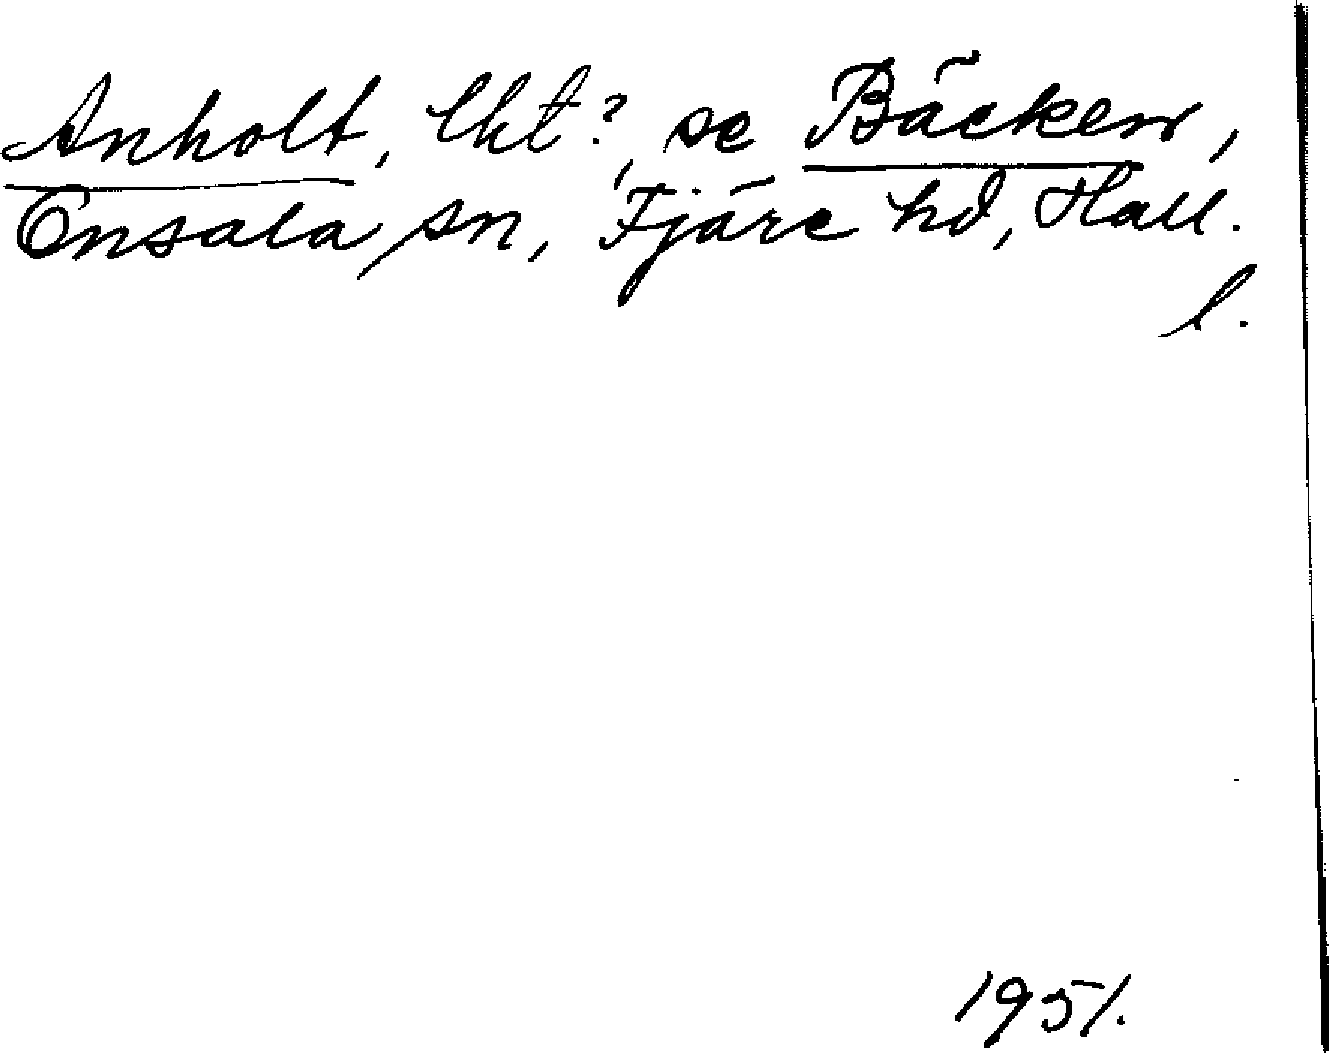 Anholt, lht?, se Bäcken,
Onsala sn, Fjäre hd, Hall.
l.
1951.